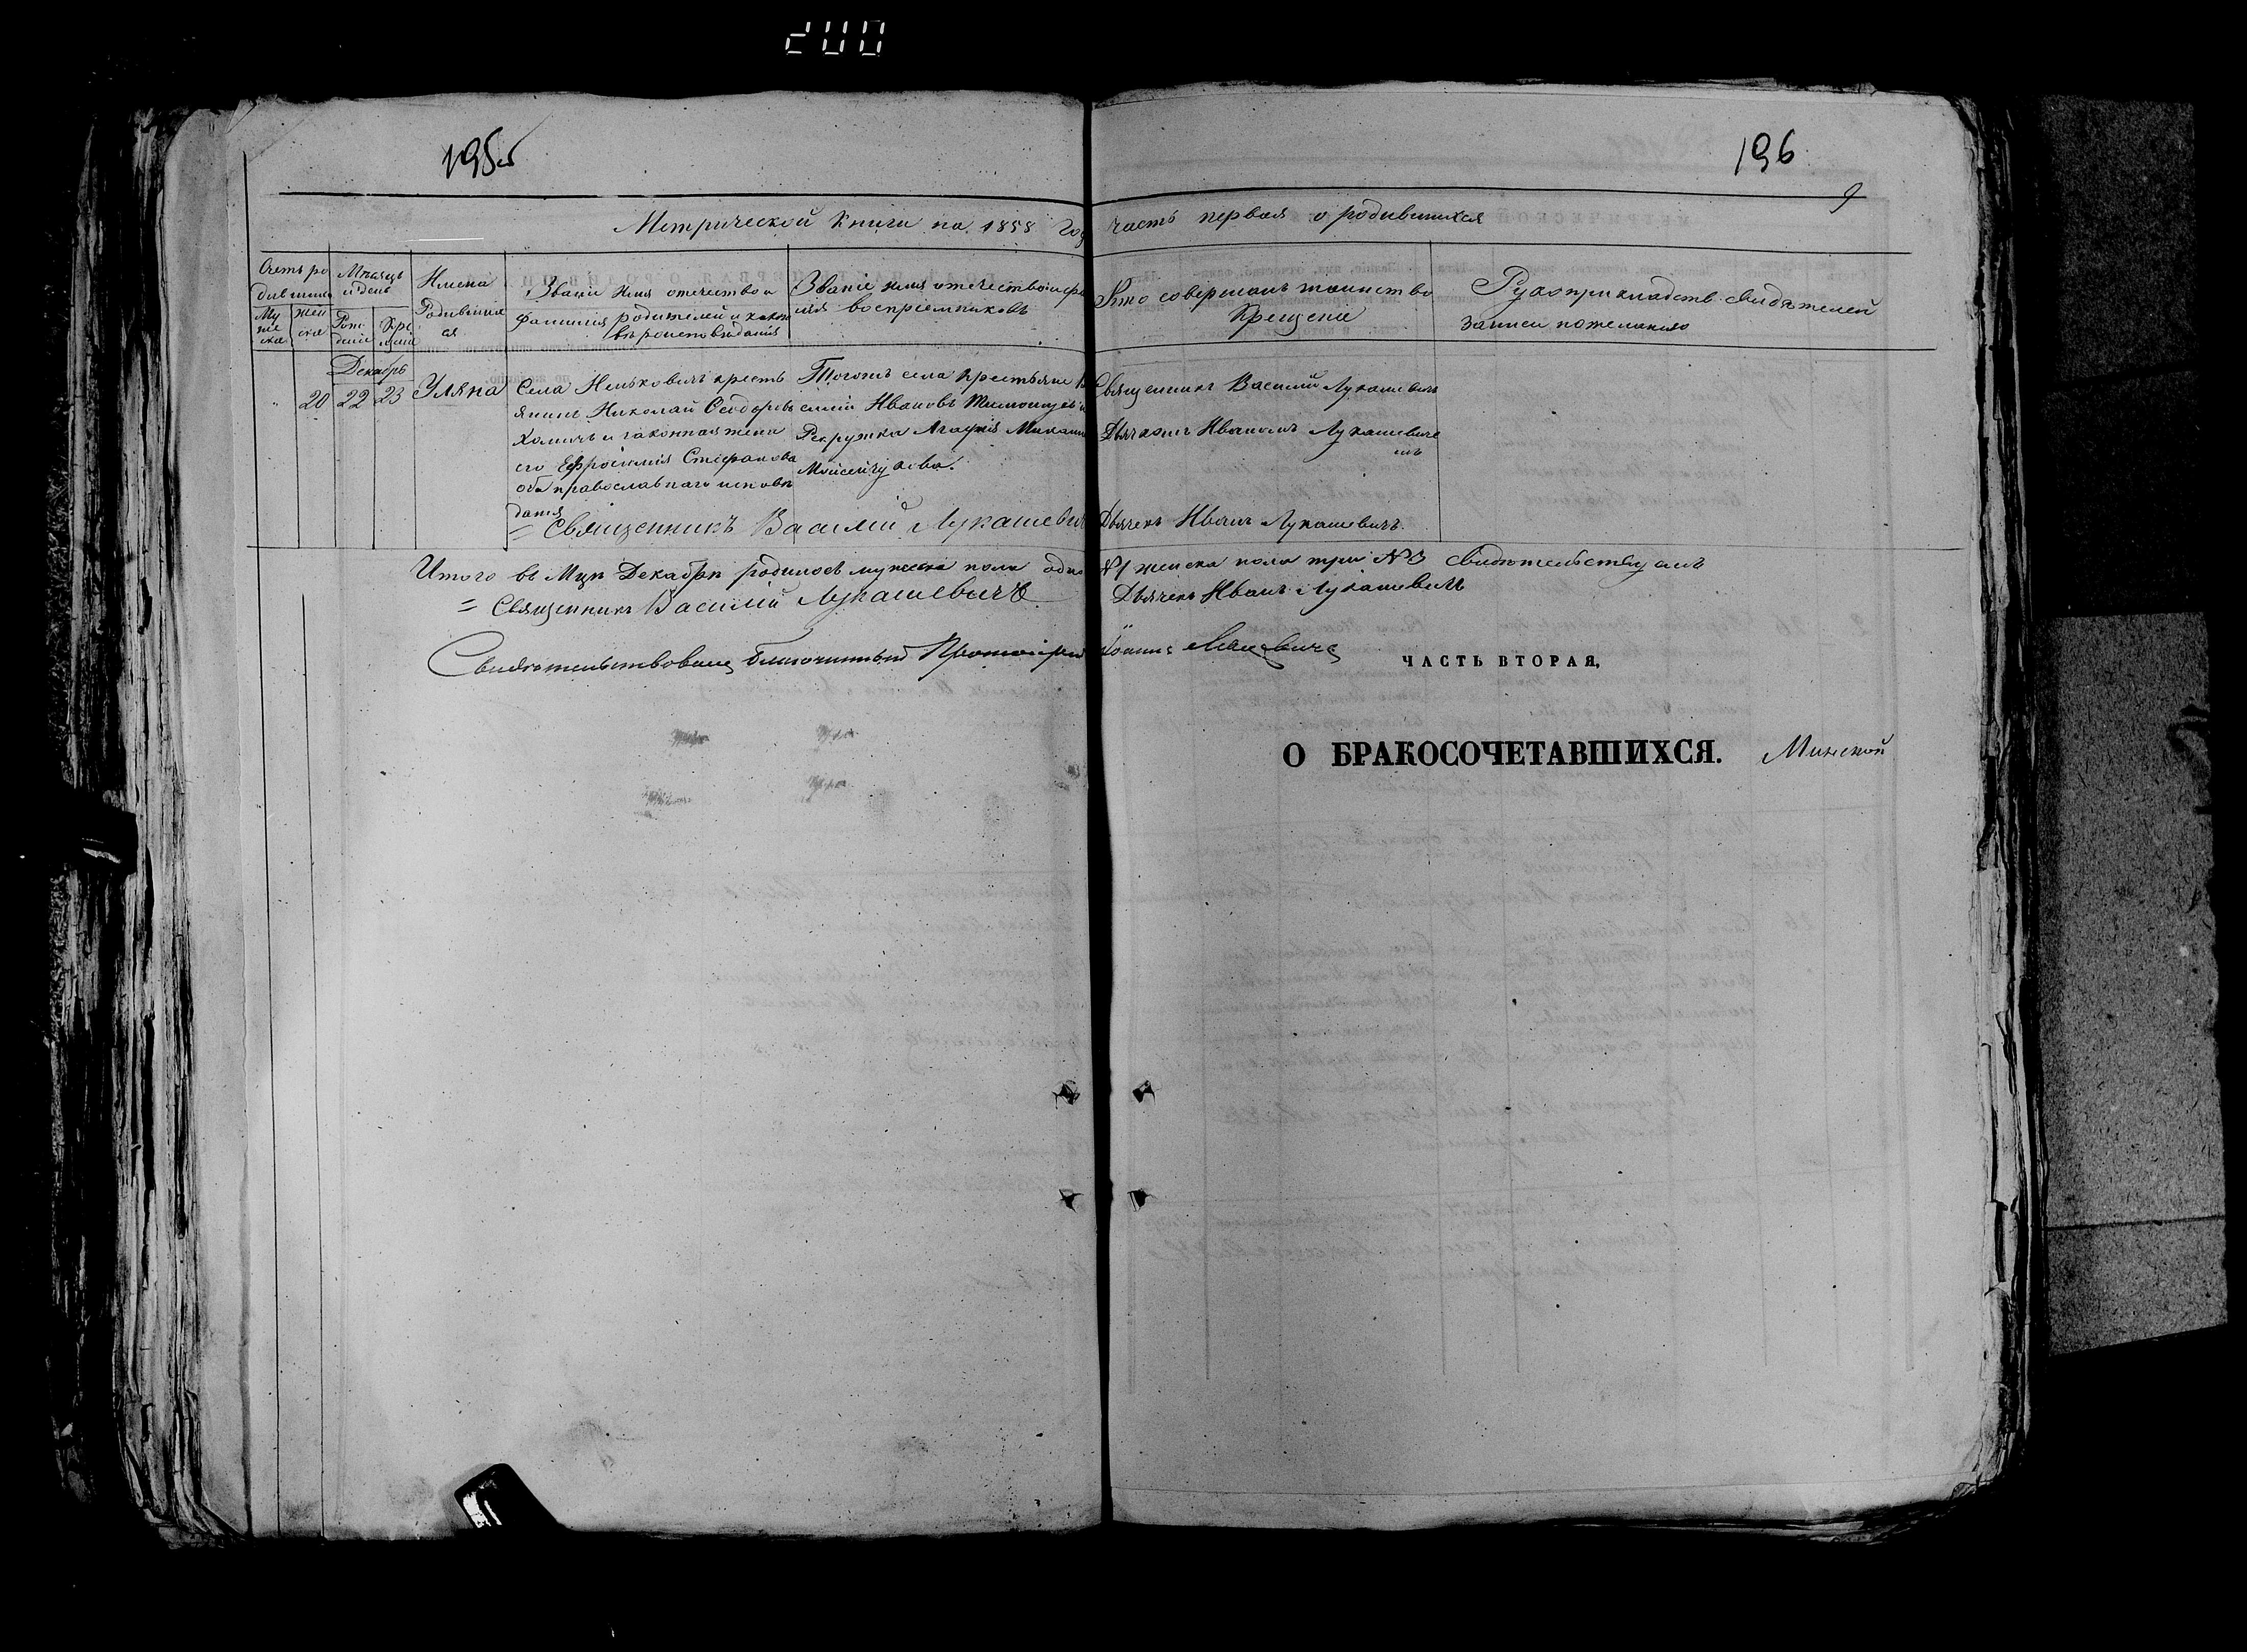 200
195об
196
9
Метрической Книги на 1858 год часть первая о родившихся
Счетъ ро
дившихся
Муже
ска
жен
ска
Мѣсяцъ
и день
Рож
денія
Кре
щенія
Имена
Родивших
ся
Званіе имя отечество и
фамилія родителей и какого
вѣроисповѣданія
Званіе имя отечество и фа
милія воспріемниковъ
Кто совершалъ таинство
Крещенія
Рукоприкладство свидѣтелей
записи по желанію
Декабрь
20 22 23 Уляна
Села крестъ
янинъ Николай Ѳеодоровъ
Хомичъ и законная жена
его Ефросинія Стефанова
оба православнаго исповѣ
данія
Тогожъ села крестьяне
Ивановъ
Агафія
Священникъ Василій Лукашевичъ
Дьячкомъ Иваномъ Лукашевиче
мъ
= Священникъ Василій Лукашевичъ Дьячекъ Иванъ Лукашевичъ
Итого въ Мцѣ Декабрѣ родилось мужеска пола одинъ №1 женска пола три №3 свидѣтельствуемъ
= Священникъ Василій Лукашевичъ Дьячекъ Иванъ Лукашевичъ
Свидѣтельствовалъ Благочинный Протоіерей Іоаннъ
ЧАСТЬ ВТОРАЯ,
О БРАКОСОЧЕТАВШИХСЯ. Минской